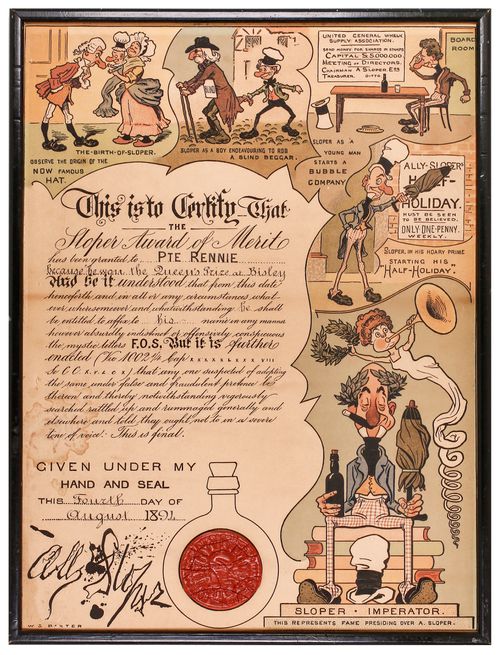 THE-BIRTH-OF-SLOPER.
OBSERVE THE ORIGIN OF THE
NOW FAMOUS
HAT.
SLOPER AS A BOY ENDEAVOURING TO ROB
A BLIND BEGGAR.
UNITED GENERAL WHELK
SUPPLY ASSOCIATION.
SEND MONEY FOR SHARES IN STAMPS
CAPITAL £5,000,000.
MEETING OF DIRECTORS.
CHAIRMAN A SLOPER ESQ
TREASURER DITTO
BOARD
ROOM
SLOPER AS A
YOUNG MAN
STARTS A
BUBBLE
COMPANY
ALLY-SLOPER'S
HALF-
HOLIDAY.
MUST BE SEEN
TO BE BELIEVED.
ONLY-ONE-PENNY.
WEEKLY.
SLOPER, IN HIS HOARY PRIME
STARTING HIS
"HALF-HOLIDAY".
This is to Certify That
THE
Sloper Award of Merit
has been granted to PTE RENNIE
because he won the Queen's Prize at Bisley
And be it understood that from this date
henceforth and in all or any circumstances, what-
ever, whensomever and whatwithstanding he shall
be entitled to affix to his name in any manner
however absurdly indistinct or offensively conspicuous
the mystic letters F.O.S. But it is further
enacted (Vic 1002¾ Cap
So CC.) that any one suspected of adopting
the same under false and fraudulent pretence be
thereon and thereby notwithstanding vigorously
searched rattled up and rummaged generally and
elsewhere and told they ought not to in a severe
tone of voice. This is final.
GIVEN UNDER MY
HAND AND SEAL
THIS Fourth DAY OF
August 1894
Ally Sloper
W. G. BAXTER
SLOPER · IMPERATOR.
THIS REPRESENTS FAME PRESIDING OVER A. SLOPER.